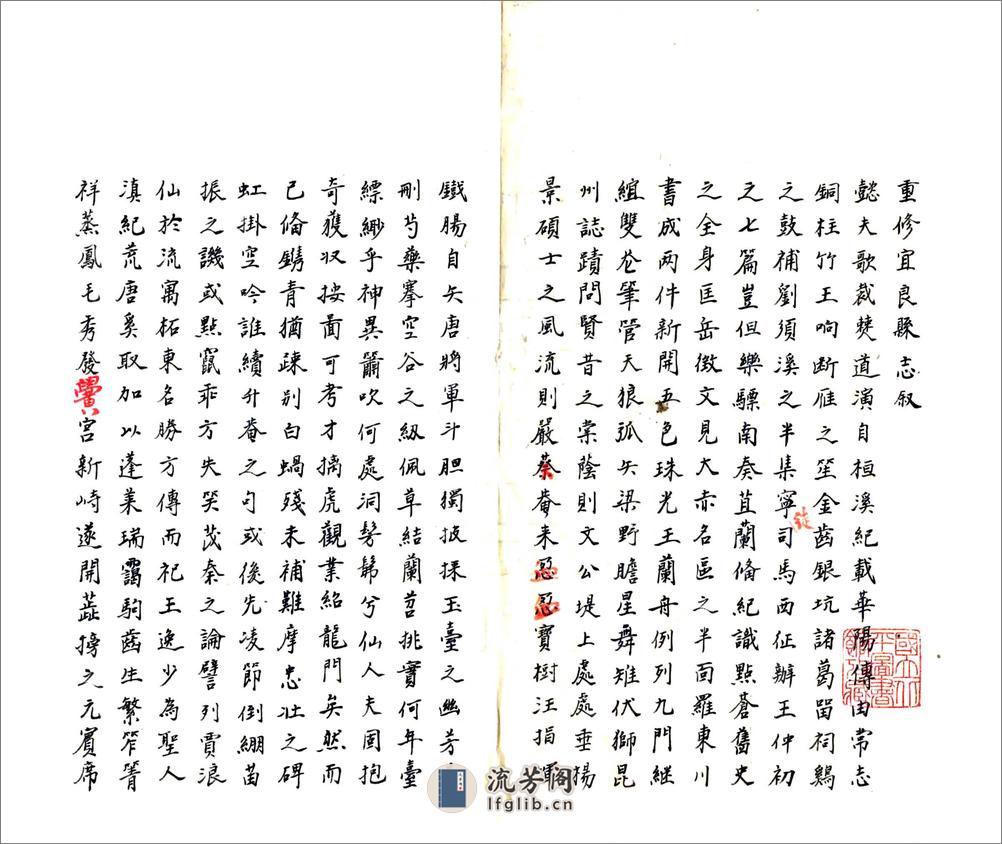 重修宜良縣志叙
懿夫歌裁僰道演自桓溪紀載華陽傳由常志
銅柱竹王响断雁之笙金齒銀坑諸葛畄祠鷄
之鼓補劉須溪之半集寜司馬西征辦王仲初
之七篇豈但樂驃南奏苴蘭俻紀識點蒼舊史
之全身匡岳徴文見大赤名區之半面羅東川
書成两件新開五色珠光王蘭舟例列九門継
縆雙花筆管天狼弧矢梁野瞻星舞雉伏獅昆
州誌蹟問賢昔之棠蔭則文公堤上處處垂揚
景碩士之風流則嚴菴来寳樹汪捐
鐡腸自矢唐將軍斗胆獨披採玉臺之幽芳
刪芍藥搴空谷之紉佩草結蘭苕挑實何年臺
縹緲乎神異簫吹何處洞髣髴兮仙人夫固抱
奇獲収按啚可考才摛虎觀業紹龍門矣然而
已俻鐫青猶踈别白蝸殘未補難摩忠壯之碑
虹掛空吟誰續升菴之句或後先凌節倒綳苗
振之譏或點竄乖方失笑茂秦之論譬列賈浪
仙於流寓柘東名勝方傳而祀王逸少為聖人
滇紀荒唐奚取加以蓬莱瑞靄駒齒生繁笮箐
祥蒸鳳毛秀發黌宫新峙遂開蕋搒之元賓席
錠
流芳阁
lfglib.cn